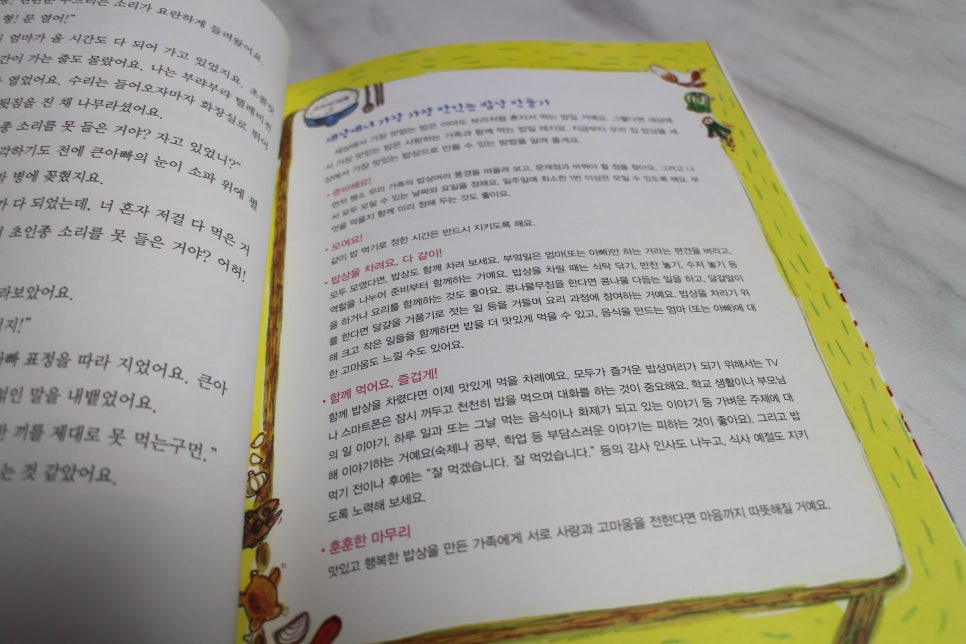 소리가 요란하게 들려왔어요.
형! 문 열어!"
엄마가 올 시간도 다 되어 가고 있었지요. 초콜릿
간이 가는 줄도 몰랐어요. 나는 부랴부랴 텔레비전
열었어요. 수리는 들어오자마자 화장실로 뛰어
뒷짐을 진 채 나무라셨어요.
종 소리를 못 들은 거야? 자고 있었니?"
각하기도 전에 큰아빠의 눈이 소파 위에 펼
병에 꽂혔지요.
다 되었는데. 너 혼자 저걸 다 먹은 거
초인종 소리를 못 들은 거야? 어허!
라보았어요.
지!"
아빠 표정을 따라 지었어요. 큰아
말을 내뱉었어요.
한 끼를 제대로 못 먹는구먼."
는 것 같았어요.
세상에서 가장 맛있는 밥상 만들기
세상에서 가장 맛없는 밥은 아마도 보리처럼 혼자서 먹는 밥일 거예요. 그렇다면 세상에
서 가장 맛있는 밥은 사랑하는 가족과 함께 먹는 밥일 테지요. 지금부터 우리 집 밥상을 세
상에서 가장 맛있는 밥상으로 만들 수 있는 방법을 알려 줄게요.
• 준비해요!
먼저 평소 우리 가족의 밥상머리 풍경을 떠올려 보고, 문제점과 바꿔야 할 점을 찾아요. 그리고 나
서 모두 모일 수 있는 날짜와 요일을 정해요. 일주일에 최소한 1번 이상은 모일 수 있도록 해요. 무
엇을 먹을지 함께 미리 정해 두는 것도 좋아요.
• 모여요!
같이 밥 먹기로 정한 시간은 반드시 지키도록 해요.
• 밥상을 차려요, 다 같이!
모두 모였다면, 밥상도 함께 차려 보세요. 부엌일은 엄마(또는 아빠)만 하는 거라는 편견을 버리고,
역할을 나누어 준비부터 함께하는 거예요. 밥상을 차릴 때는 식탁 닦기, 반찬 놓기, 수저 놓기 등
을 하거나 요리를 함께하는 것도 좋아요. 콩나물무침을 한다면 콩나물 다듬는 일을 하고, 달걀말이
를 한다면 달걀을 거품기로 젓는 일 등을 거들며 요리 과정에 참여하는 거예요. 밥상을 차리기 위
해 크고 작은 일들을 함께하면 밥을 더 맛있게 먹을 수 있고, 음식을 만드는 엄마 (또는 아빠)에 대
한 고마움도 느낄 수도 있어요.
• 함께 먹어요, 즐겁게!
함께 밥상을 차렸다면 이제 맛있게 먹을 차례예요. 모두가 즐거운 밥상머리가 되기 위해서는 TV
나 스마트폰은 잠시 꺼두고 천천히 밥을 먹으며 대화를 하는 것이 중요해요. 학교 생활이나 부모님
의 일 이야기, 하루 일과 또는 그날 먹는 음식이나 화제가 되고 있는 이야기 등 가벼운 주제에 대
해 이야기하는 거예요(숙제나 공부, 학업 등 부담스러운 이야기는 피하는 것이 좋아요). 그리고 밥
먹기 전이나 후에는 "잘 먹겠습니다. 잘 먹었습니다." 등의 감사 인사도 나누고, 식사 예절도 지키
도록 노력해 보세요.
• 훈훈한 마무리
맛있고 행복한 밥상을 만든 가족에게 서로 사랑과 고마움을 전한다면 마음까지 따뜻해질 거예요.